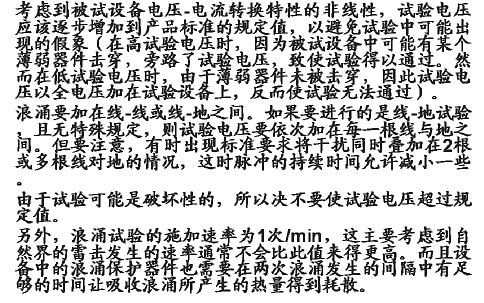 考虑到被试设备电压-电流转换特性的非线性，试验电压
应该逐步增加到产品标准的规定值，以避免试验中可能出
现的假象（在高试验电压时，因为被试设备中可能有某个
薄弱器件击穿，旁路了试验电压，致使试验得以通过。然
而在低试验电压时，由于薄弱器件未被击穿，因此试验电
压以全电压加在试验设备上，反而使试验无法通过）。
浪涌要加在线-线或线-地之间。如果要进行的是线-地试验
，且无特殊规定，则试验电压要依次加在每一根线与地之
间。但要注意，有时出现标准要求将干扰同时叠加在2根
或多根线对地的情况，这时脉冲的持续时间允许减小一些
。
由于试验可能是破坏性的，所以决不要使试验电压超过规
定值。
另外，浪涌试验的施加速率为1次/min，这主要考虑到自
然界的雷击发生的速率通常不会比此值来得更高。而且设
备中的浪涌保护器件也需要在两次浪涌发生的间隔中有足
够的时间让吸收浪涌所产生的热量得到耗散。